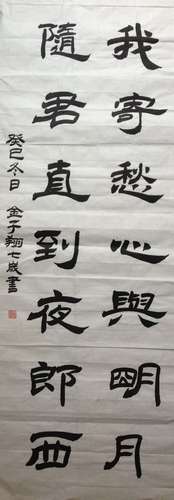 我寄愁心與明月
隨君直到夜郎西
癸巳冬日 金子翔七歲書